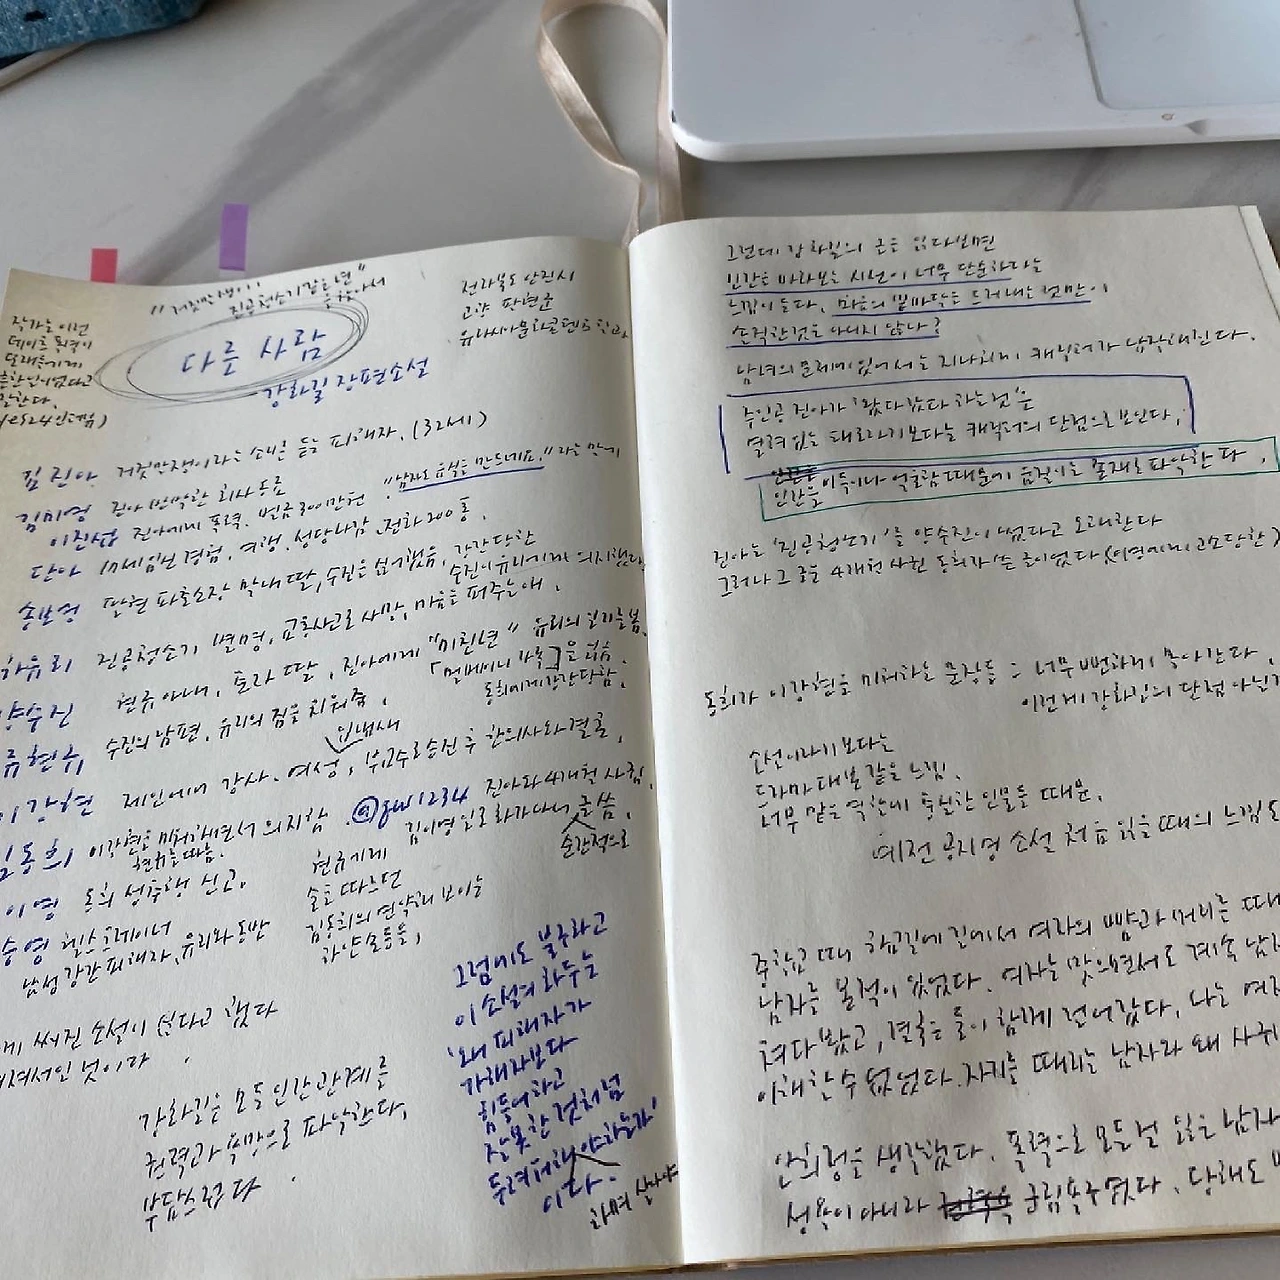 "거짓말쟁이,
진공청소기같은년"
전라북도 안진시
고향 판현군
유라시아문화콘텐츠학과
작가는 이런
데이트 폭력이
말한다.
(yes24인터뷰)
다른 사람
강화길 장편소설
김진아 거짓말쟁이라는 소리를 듣는 피해자. (32세)
김미영 진아 회사 동료 "남자도 유식을 만드네요." 라는 말에
이진섭 진아에게 폭력. 벌금 300만원
단아 임신 경험, 여행, 성당나감, 전화 200통.
송보영 판현 파출소장 막내딸, 수진을 싫어했음, 강간당한 수진이 유리에게 의지했다
하유리 진공청소기 별명, 교통사고로 사망, 마음을 퍼주는 애.
양수진 현규 아내, 토라 딸, 진아에게 "미친년" 유리의 일기를 봄.
동희에게 강간당함.
류현규, 수진의 남편, 유리의 짐을 치워줌.
입냄새
이강현 제인에어 강사. 여성, 부교수로 승진 후 한의사와 결혼,
김동희 이강현을 미워하면서 의지함
현규를 따름.
@qw1234 진아와 4개월 사귐.
김이영 일로 화가 나서 글 씀,
순간적으로
이영 동희 성추행 신고.
현규에게
술을 따르던
김동희의 연약해 보이는
하얀 손등을,
승영 헬스트레이너
남성 강간 피해자, 유리와 동반
게 써진 소설이 싫다고 했다
져서인 것이다.
강화길은 모든 인간관계를
권력과 욕망으로 파악한다,
부담스럽다.
그럼에도 불구하고
이 소설의 화두는
'왜 피해자가
가해자보다
힘들어하고
잘못한 것처럼
두려워해야 하는가'
이다.
하며 살아야
그런데 강화길의 글을 읽다보면
인간을 바라보는 시선이 너무 단순하다는
느낌이 든다, 마음의 밑바닥을 드러내는 것만이
솔직한 것은 아니지 않나?
남녀의 문제에 있어서는 지나치게 캐릭터가 납작해진다.
주인공 진아가 '왔다 갔다 하는 것'은
열려있는 태도라기보다는 캐릭터의 단점으로 보인다,
인간을 이득이나 억울함 때문에 움직이는 존재로 파악한다,
진아는 '진공청소기'를 양수진이 썼다고 오해한다
그러나 그 글은 4개월 사귄 동희가 쓴 글이었다 (이영에게 고소당한)
동희가 이강현을 미워하는 문장들은 너무 뻔하게 묶여간다,
이런게 강화길의 단점 아닌가
소설이라기 보다는
드라마 대본 같은 느낌.
너무 맡은 역할에 충실한 인물들 때문,
예전 공지영 소설 처음 읽을 때의 느낌도
중학교 때 하굣길에 길에서 여자의 뺨과 머리를 때
남자를 본적이 있었다. 여자는 맞으면서도 계속 남자
쳐다봤고, 결국은 둘이 함께 걸어갔다, 나는 여자
이해할 수 없었다. 자기를 때리는 남자와 왜 사귀
안희정을 생각했다. 폭력으로 모든걸 잃은 남자
성욕이 아니라 군림욕구였다, 당해도